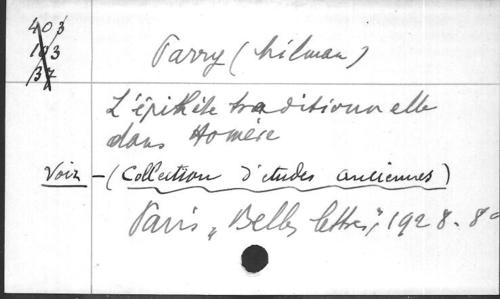 403
103
37
Parry (Milman)
L'épithète traditionnelle
dans Homère
Voir - (Collection d'études anciennes)
Paris, "Belles lettres", 1928. 8º